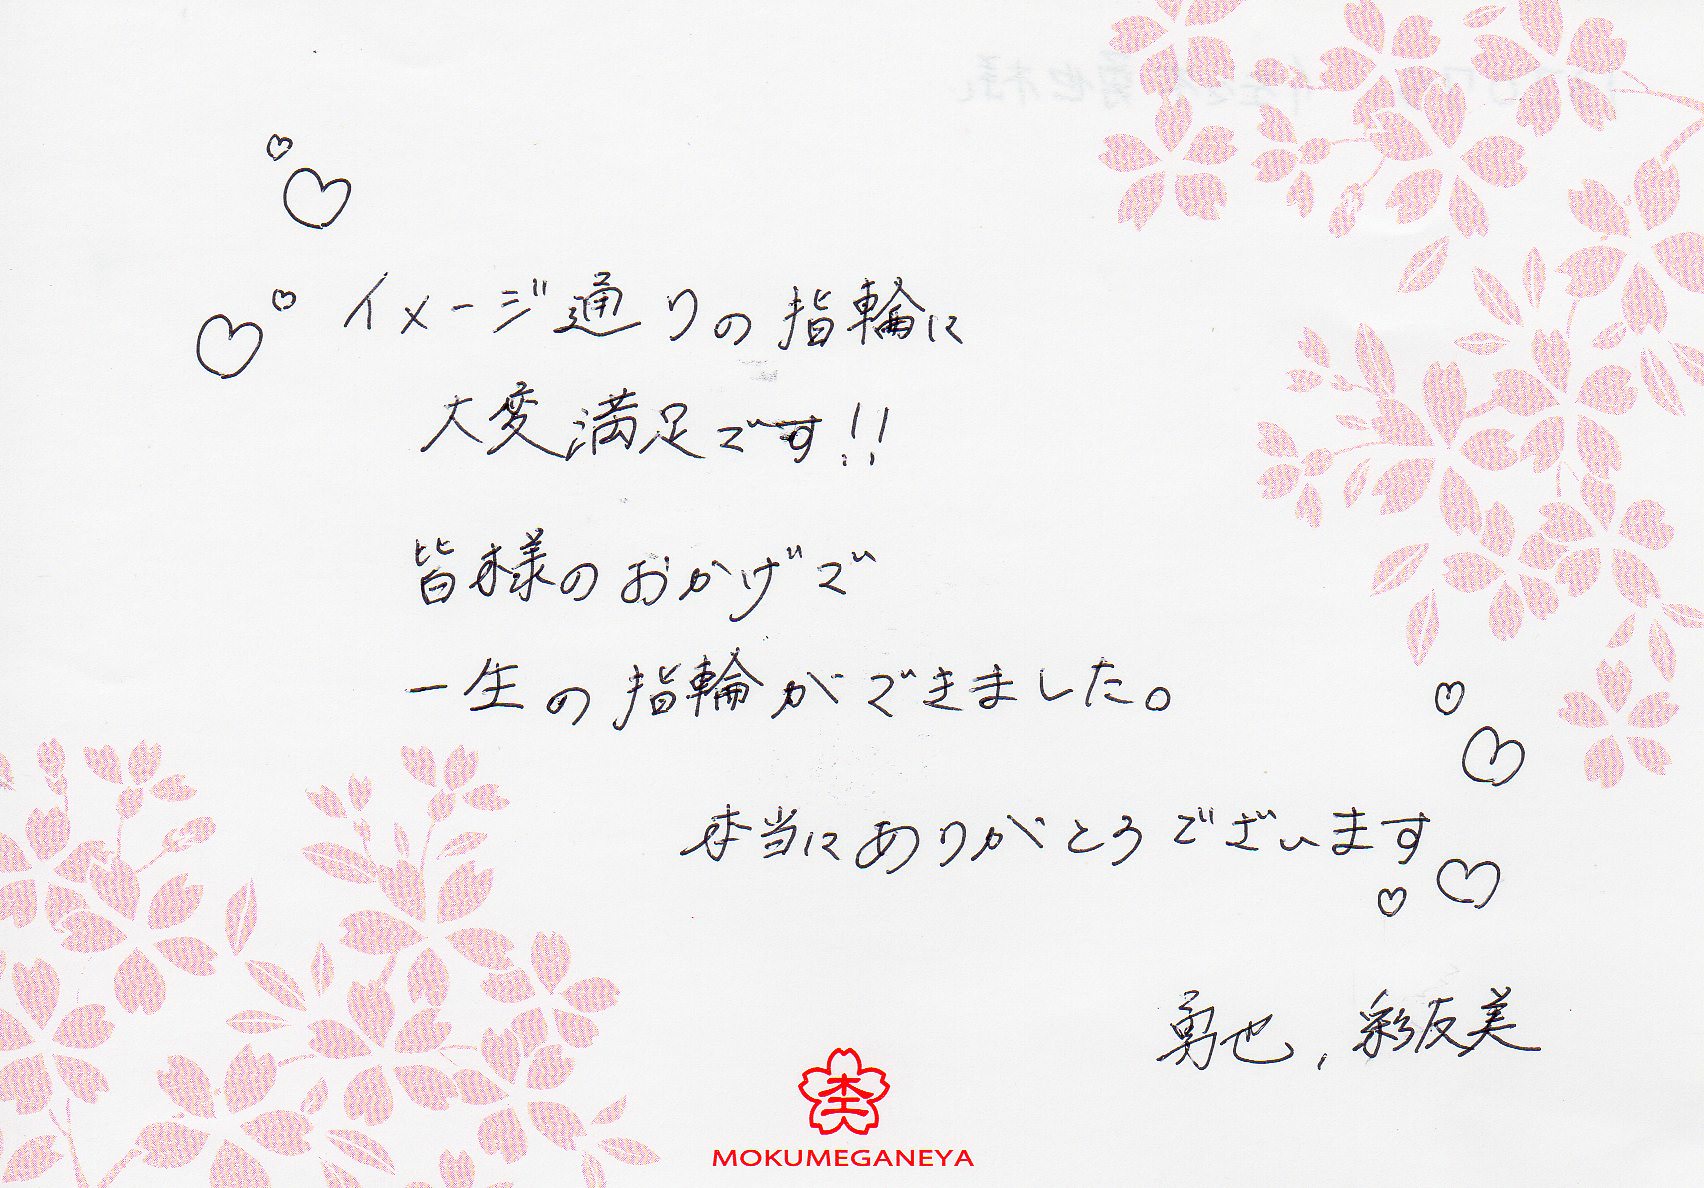 イメージ通りの指輪に
大変満足です!!
皆様のおかげで
一生の指輪ができました。
本当にありがとうございます
勇也、彩友美
杢
MOKUMEGANEYA